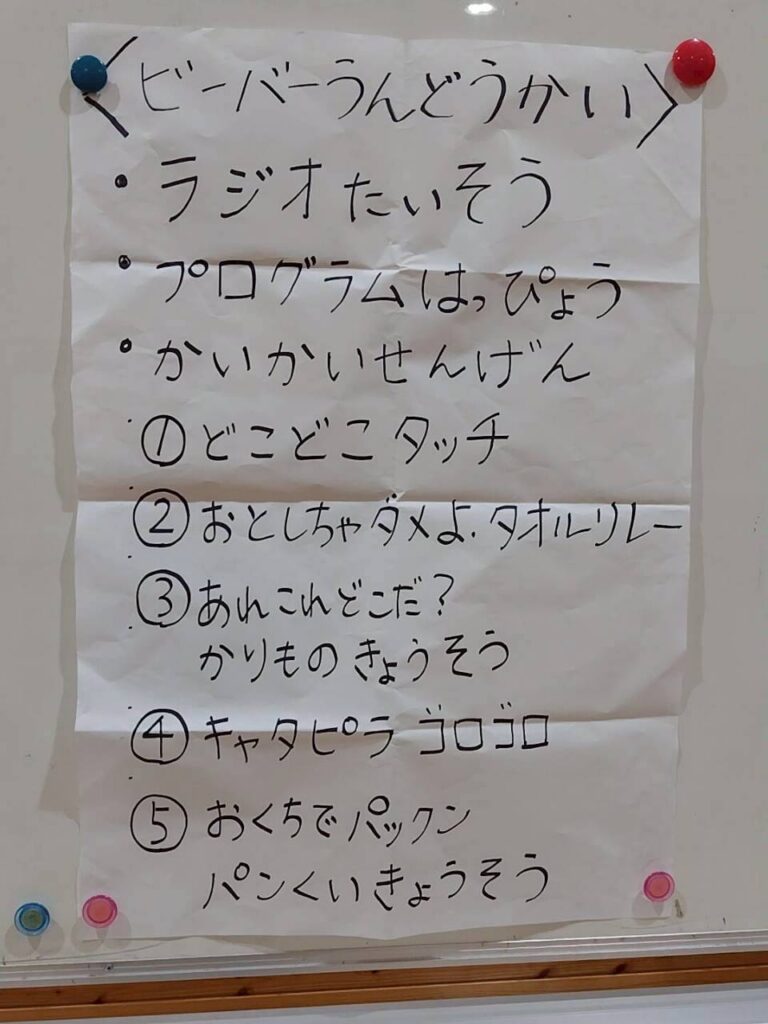 〈ビーバーうんどうかい〉
・ラジオたいそう
・プログラムはっぴょう
・かいかいせんげん
①どこどこタッチ
②おとしちゃダメよ.タオルリレー
③あれこれどこだ?
かりものきょうそう
④キャタピラゴロゴロ
⑤おくちでパックン
パンくいきょうそう